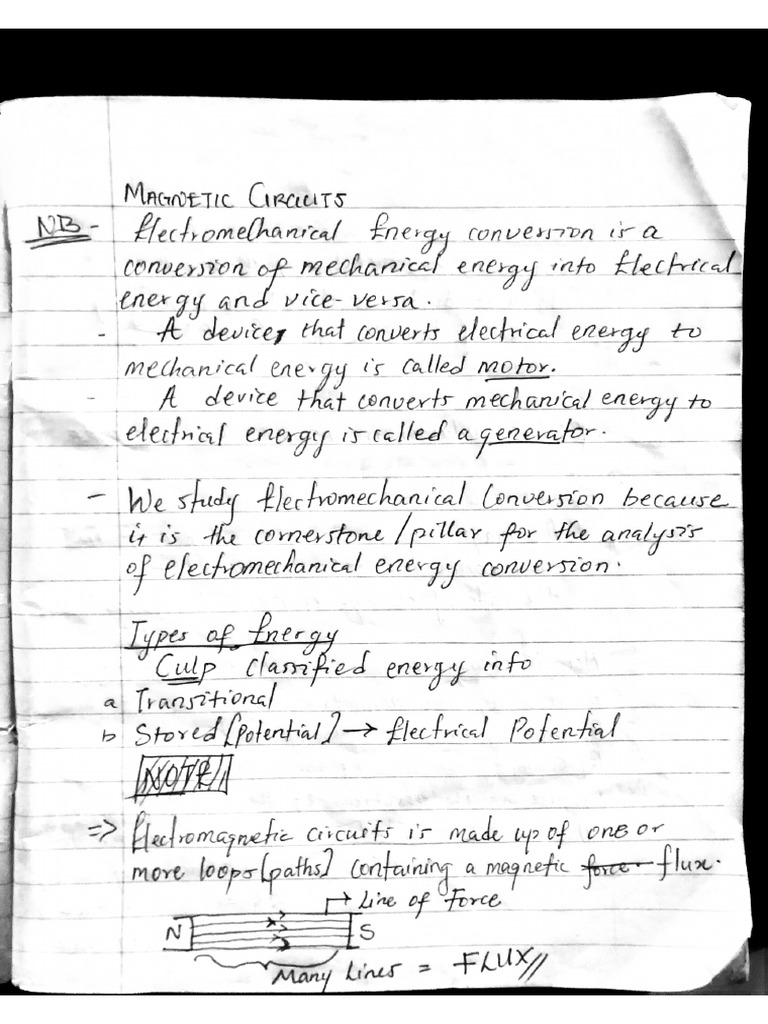 MAGNETIC CIRCUITS
NB - Electromechanical Energy conversion is a
conversion of mechanical energy into Electrical
energy and vice-versa.
- A device, that converts electrical energy to
mechanical energy is called motor.
- A device that converts mechanical energy to
electrical energy is called a generator.
- We study Electromechanical Conversion because
it is the cornerstone/pillar for the analysis
of electromechanical energy conversion.
Types of Energy
Culp classified energy into
a Transitional
b Stored [Potential] → Electrical Potential
NOTE
⇒ Electromagnetic circuits is made up of one or
more loops [paths] containing a magnetic force flux.
→ Line of Force
N S
Many Lines = FLUX//